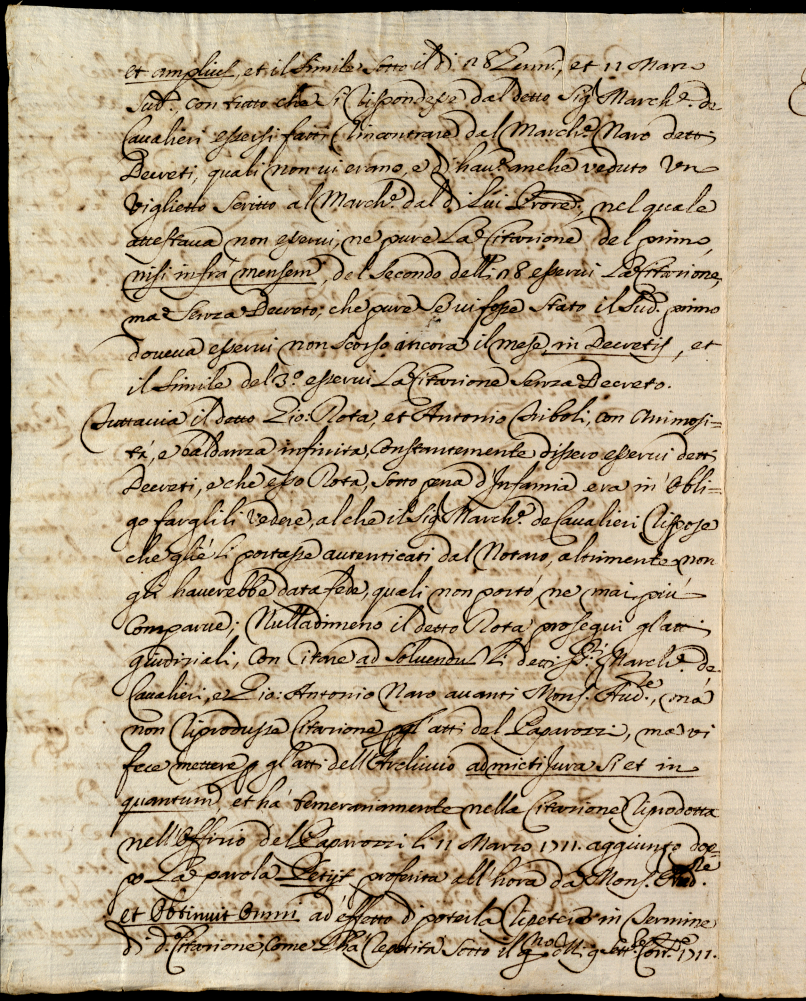 et amplius, et il simile sotto il dì 28 Genn.º, et 11 Marzo
sud.º con tutto che si rispondesse dal detto Sig.r March.e de
Cavalieri essersi fatti rincontrare dal March.e Naro detti
Decreti, quali non vi erano, e di hav.e anche veduto un
viglietto scritto al March.e dal di lui Procre:, nel quale
attestava non esservi, ne pure la Citatione del primo,
nisi infrà mensem, del secondo delli 28 esservi la Citatione,
ma senza Decreto; che pure se vi fosse stato il sud.º primo
doveva esservi non scorso ancora il mese, in Decretis, et
il simile del 3.º esservi la Citatione senza Decreto.
Tuttavia il detto Gio: Rota, et Antonio Triboli, con animosi=
tà, e baldanza infinita, constantemente dissero esservi detti
Decreti, e che esso Rota, sotto pena d'Infamia era in obli=
go farglili vedere, al che il Sig.r March.e de Cavalieri rispose
che glie li portasse autenticati dal Notaro, altrimente non
gli haverebbe data fede, quali non portò, ne mai più
comparve; Nulladimeno il detto Rota proseguì gl'atti
giudiziali, con citare ad solvendu li detti SS.ri March.e de
Cavalieri, e Gio: Antonio Naro avanti Mons.r Aud.re, mà
non riprodusse Citatione p gl'atti del Paparozzi, ma vi
fece mettere p gl'atti dell'Archivio admicti Jura si et in
quantum et hà temerariamente nella Citatione riprodotta
nell'Offitio del Paparozzi li 11 Marzo 1711. aggiunto dop=
po la parola Petijt proferita all'hora da Mons.r Aud.re
et Obtinuit Omni ad effetto di poterla ripetere in termine
di d.ª Citatione, come l'hà repetita sotto il 1711.